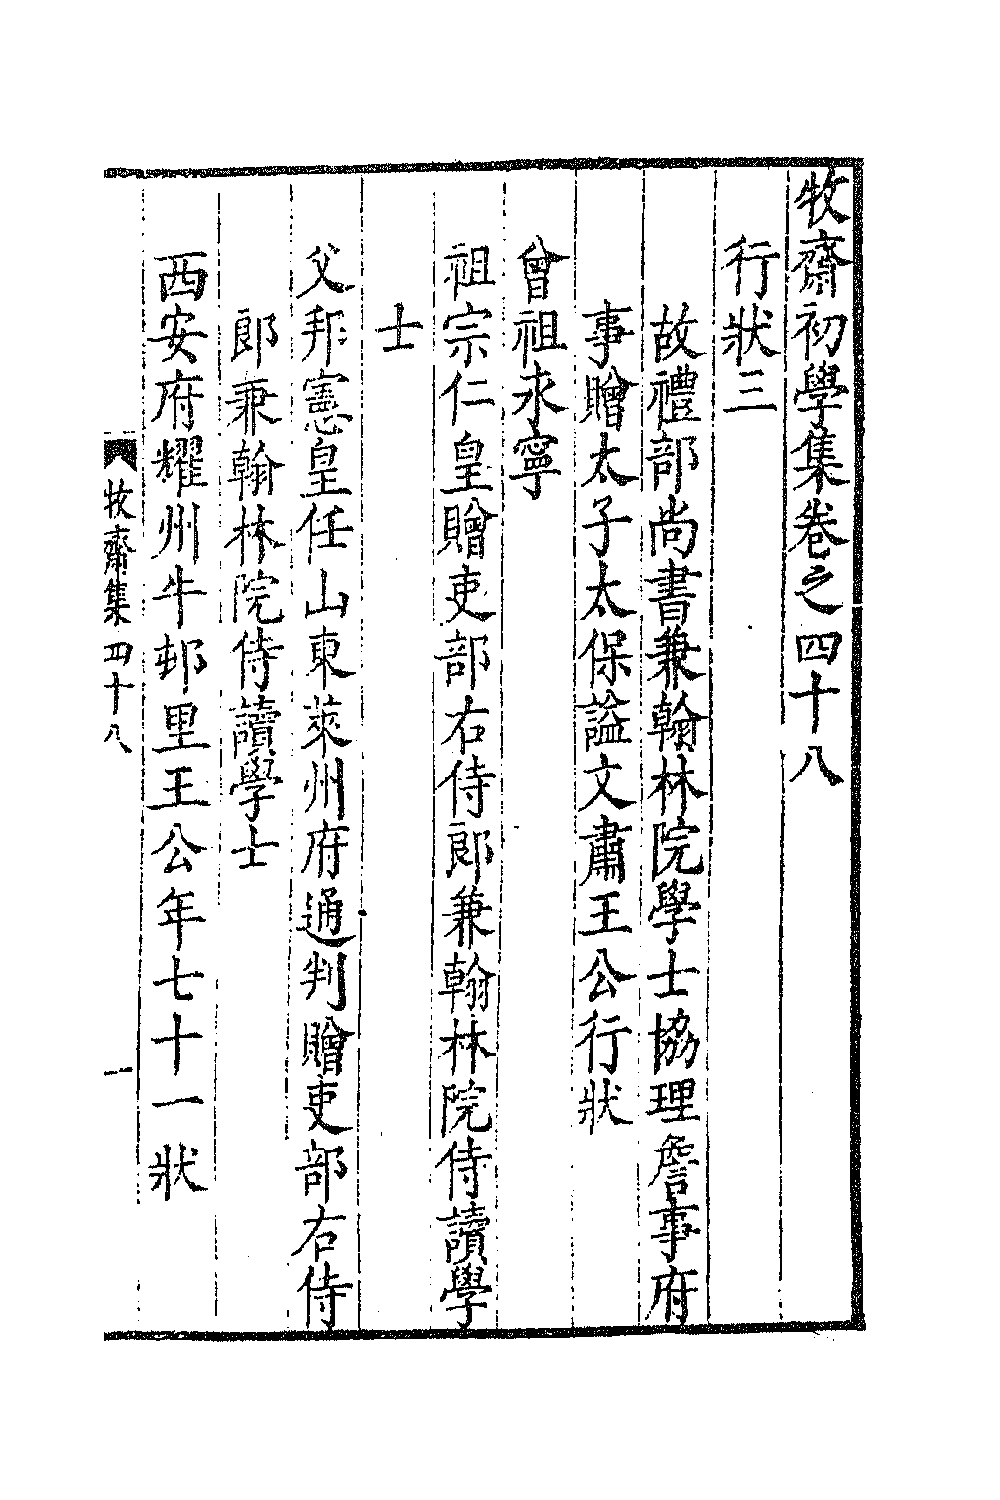 牧齋初學集卷之四十八
行狀三
故禮部尚書兼翰林院學士協理詹事府
事贈太子太保謚文肅王公行狀
曾祖永寧
祖宗仁皇贈吏部右侍郎兼翰林院侍讀學
士
父邦憲皇任山東萊州府通判贈吏部右侍
郎兼翰林院侍讀學士
西安府耀州牛邨里王公年七十一狀
牧齋集 四十八 一